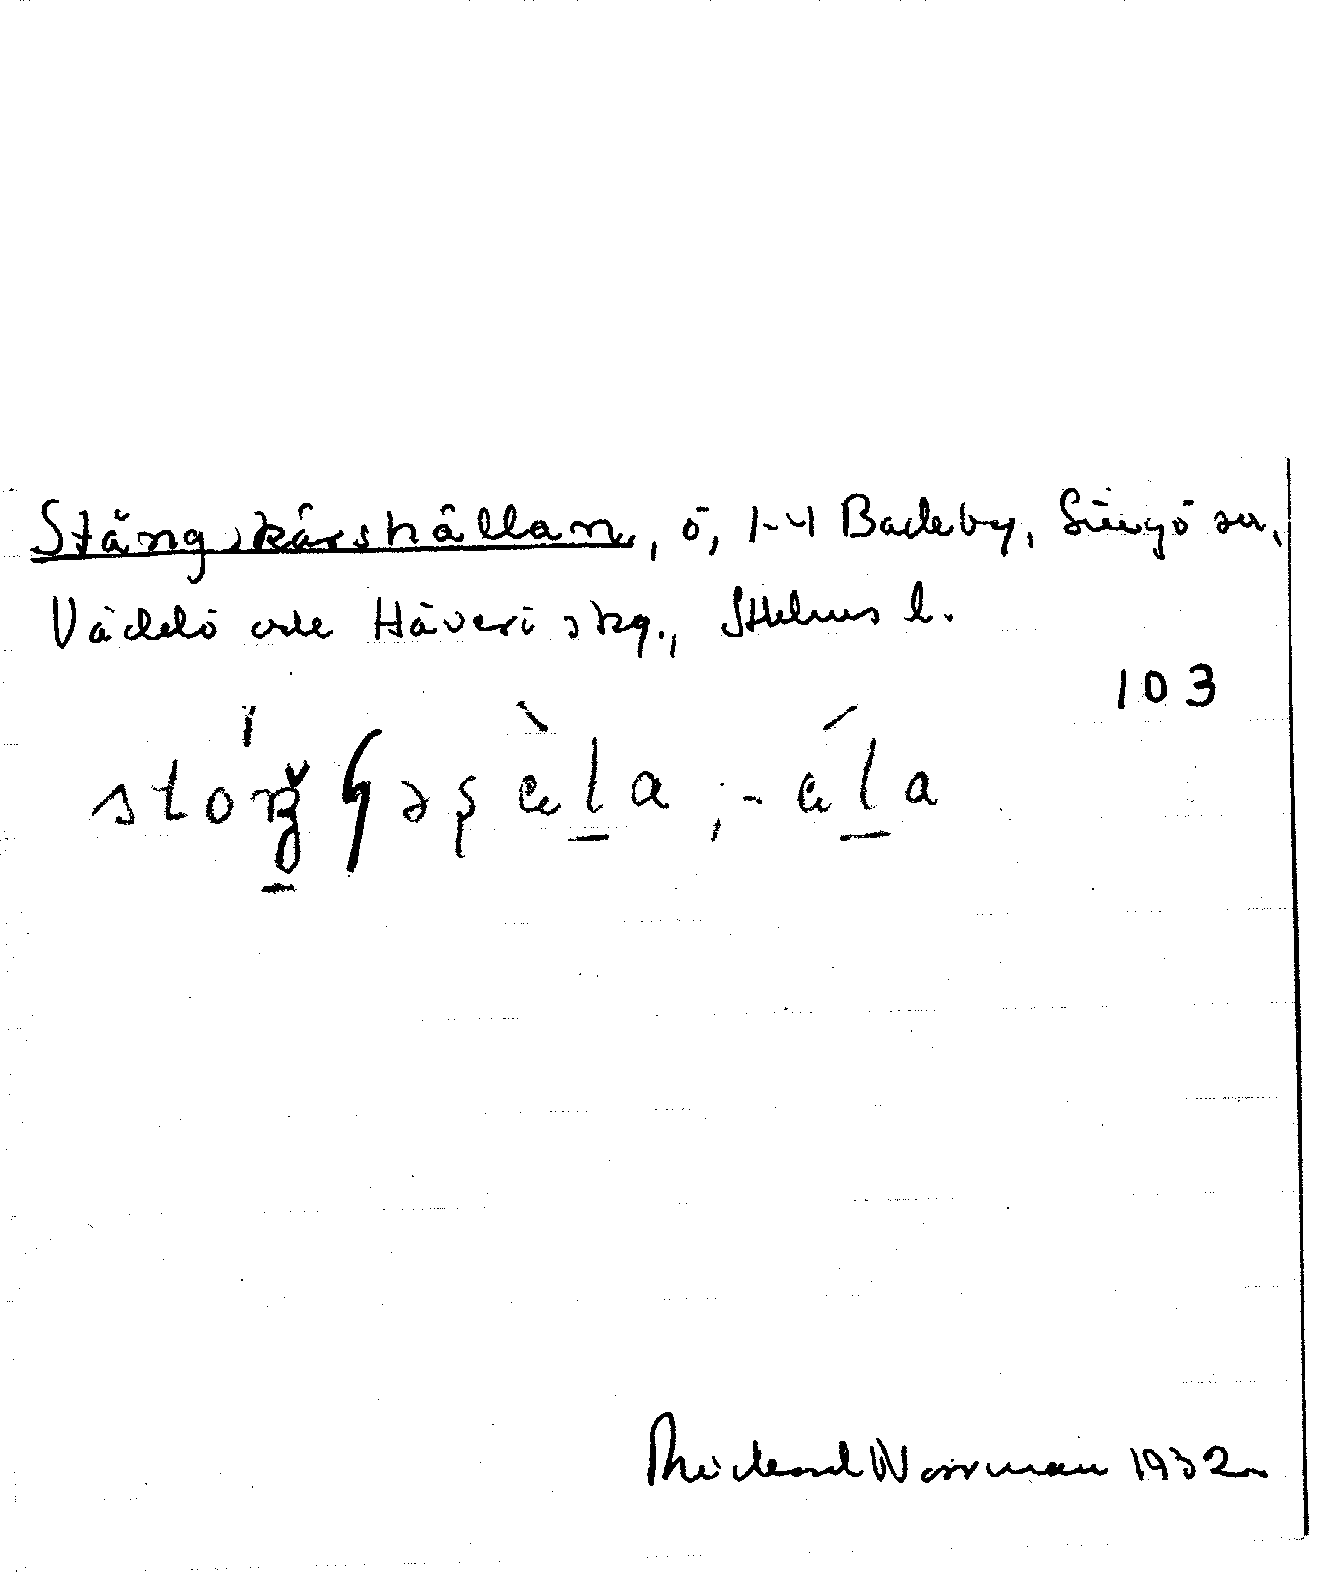 Stångskärshällan, ö, 1-4 Backby, Singö sn,
Väddö och Häverö skg., Sthlms l.
103
Rickard Norrman 1932